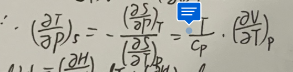 ∴ (∂T/∂P)_S = - (∂S/∂P)_T / (∂S/∂T)_P = T/C_P · (∂V/∂T)_P
(∂H